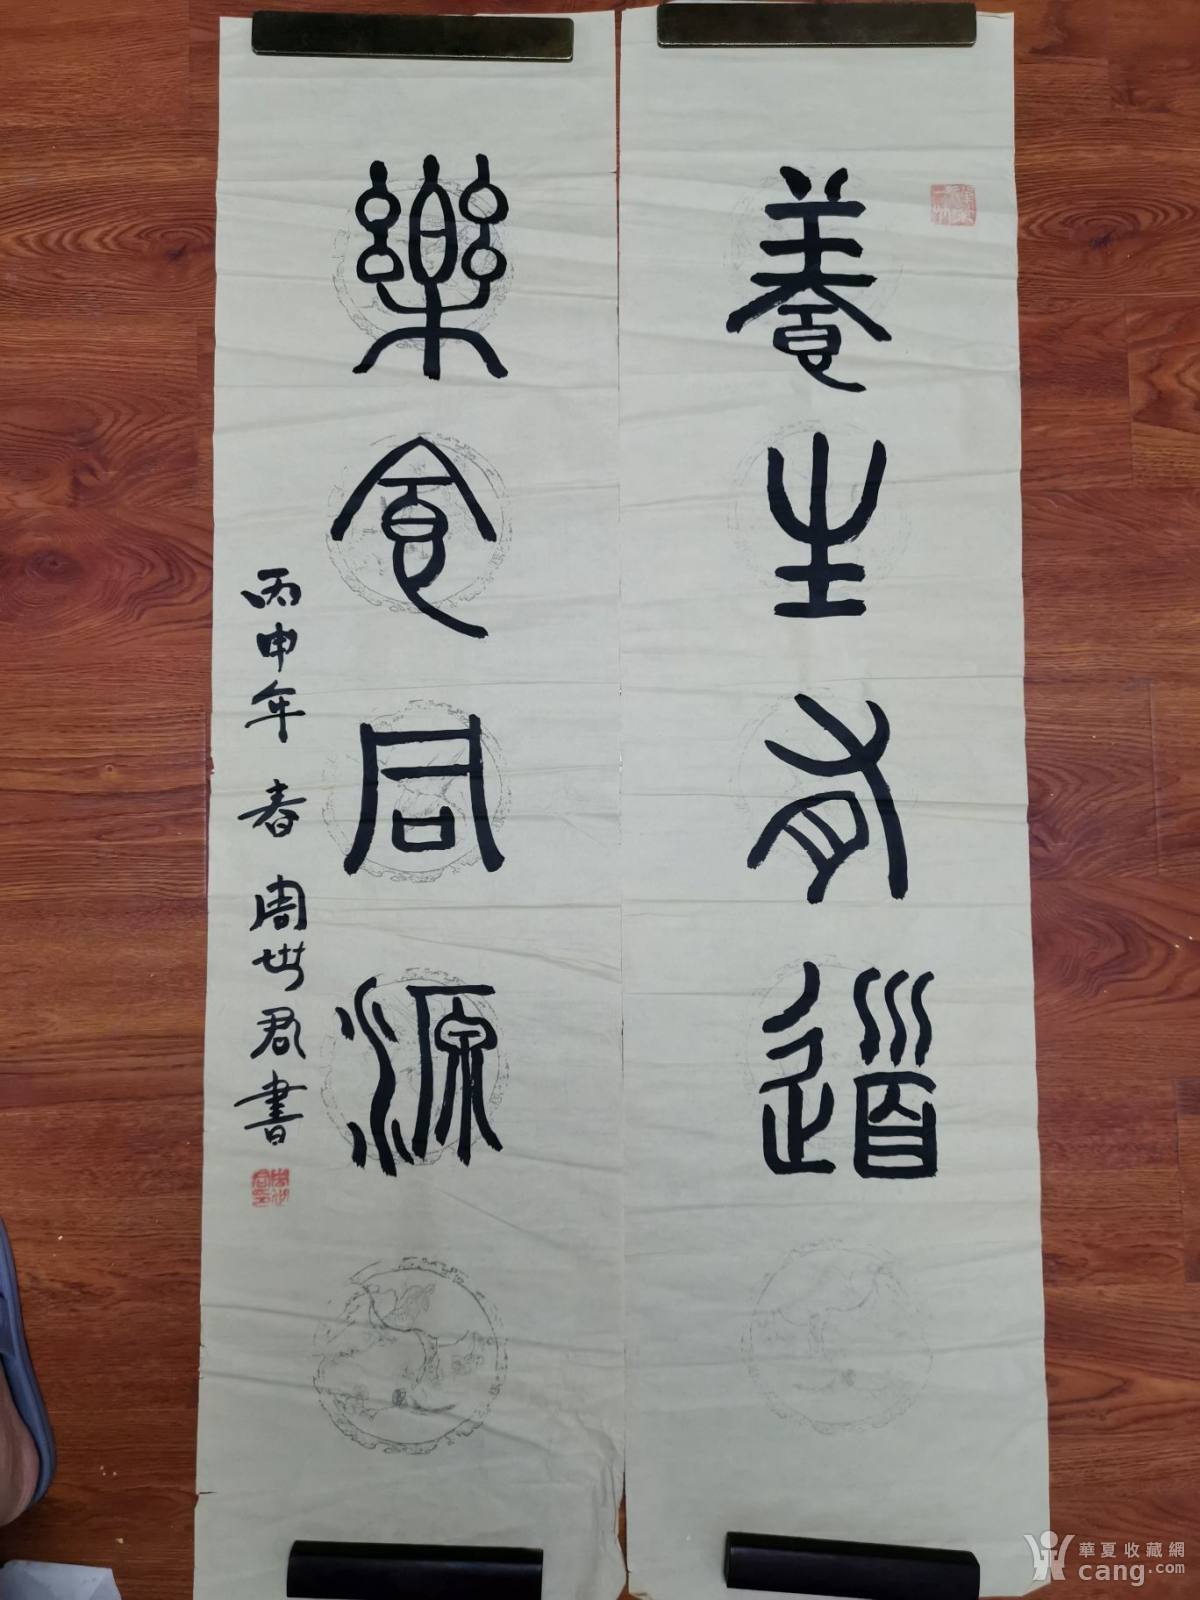 養生有道
樂食同源
丙申年 春 周世君書
華夏收藏網
cang.com